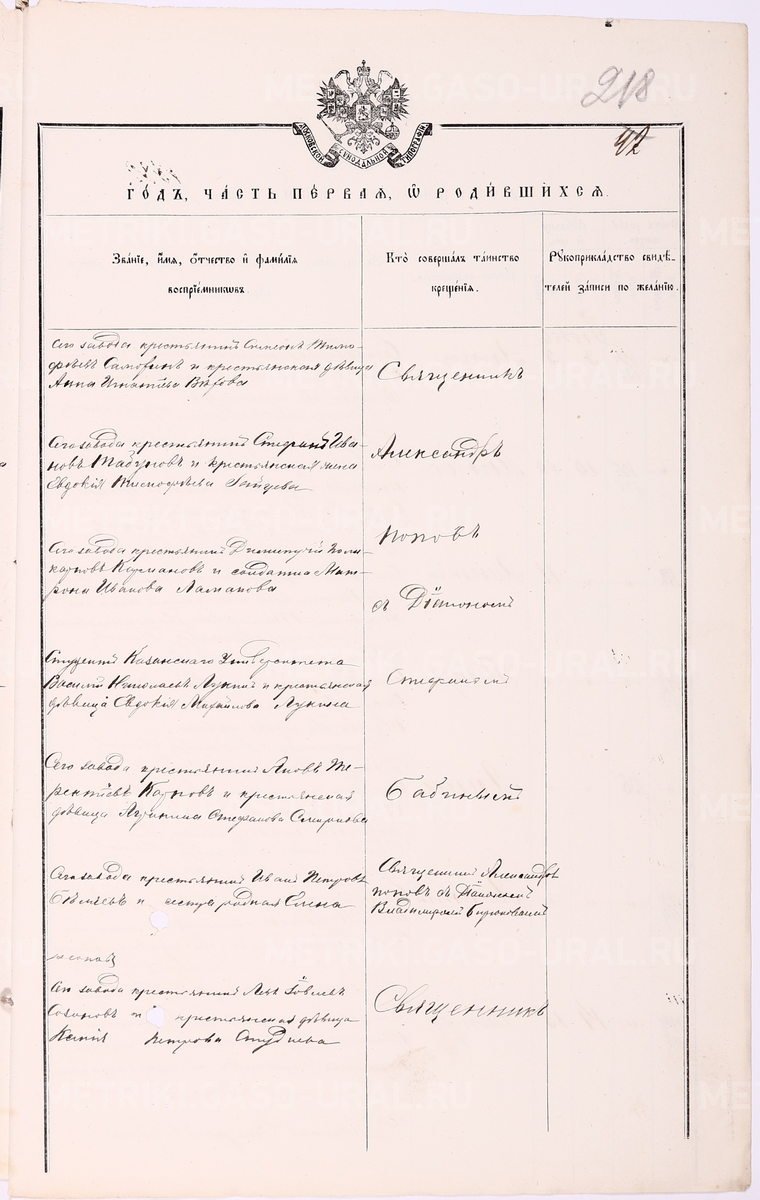 218
42
МОСКОВСКОЙ СѴНОДАЛЬНОЙ ТИПОГРАФІИ
Го́дъ, ча́сть пе́рваѧ, ѡ҆ роди́вшихсѧ.
Зва́нїе, и҆́мѧ, ѻ҆́тчество и҆ фами́лїѧ
воспрїе́мникѡвъ.
Кто̀ соверша́лъ та́инство
креще́нїѧ.
Рꙋкоприкла́дство свидѣ́-
телей за́писи по жела́нїю.
Сего завода крестьянинъ Симеонъ Тимо-
феевъ Самофинъ и крестьянская дѣвица
Анна Игнатьева
Священникъ
Сего завода крестьянинъ Стефанъ Ива-
новъ Табуновъ и крестьянская жена
Евдокія Тимофѣева Зайцева
Александръ
Поповъ
Сего завода крестьянинъ Димитрій Поли-
карповъ Кармановъ и солдатка Мат-
рона Иванова Ламанова
съ Діакономъ
Студентъ Казанскаго Университета
Василій Николаевъ Лукинъ и крестьянская
дѣвица Евдокія Михайлова Лукина
Стефаномъ
Сего завода крестьянинъ Іаковъ Те-
рентьевъ Карповъ и крестьянская
дѣвица Стефанова Смирнова
Бабинымъ
Сего завода крестьянинъ Иванъ Петровъ
и сестра родная Елена
Священникъ Александръ
Поповъ съ Діакономъ
Владиміромъ Бирюковымъ
Сего завода крестьянинъ Левъ Іовлевъ
Созоновъ и крестьянская дѣвица
Ксенія Петрова
Священникъ
METRIKI.GASO-URAL.RU